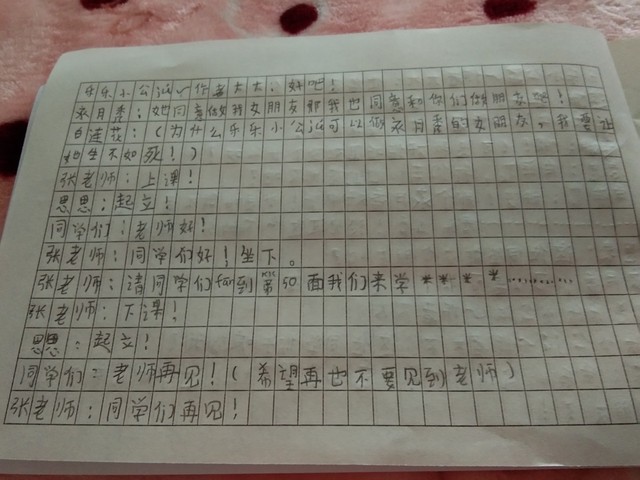 乐乐小公主:你ea大大,好吧!
衣月季:她同意做我女朋友那我也同意和你们做朋友吧!
白莲花:(为什么乐乐小公主可以做衣月季的女朋友,我要让
她生不如死!)
张老师:上课!
思思:起立!
同学们:老师好!
张老师:同学们好!坐下。
张老师:请同学们fan到第50面我们来学****…………
张老师:下课!
思思:起立!
同学们:老师再见!(希望再也不要见到老师)
张老师:同学们再见!